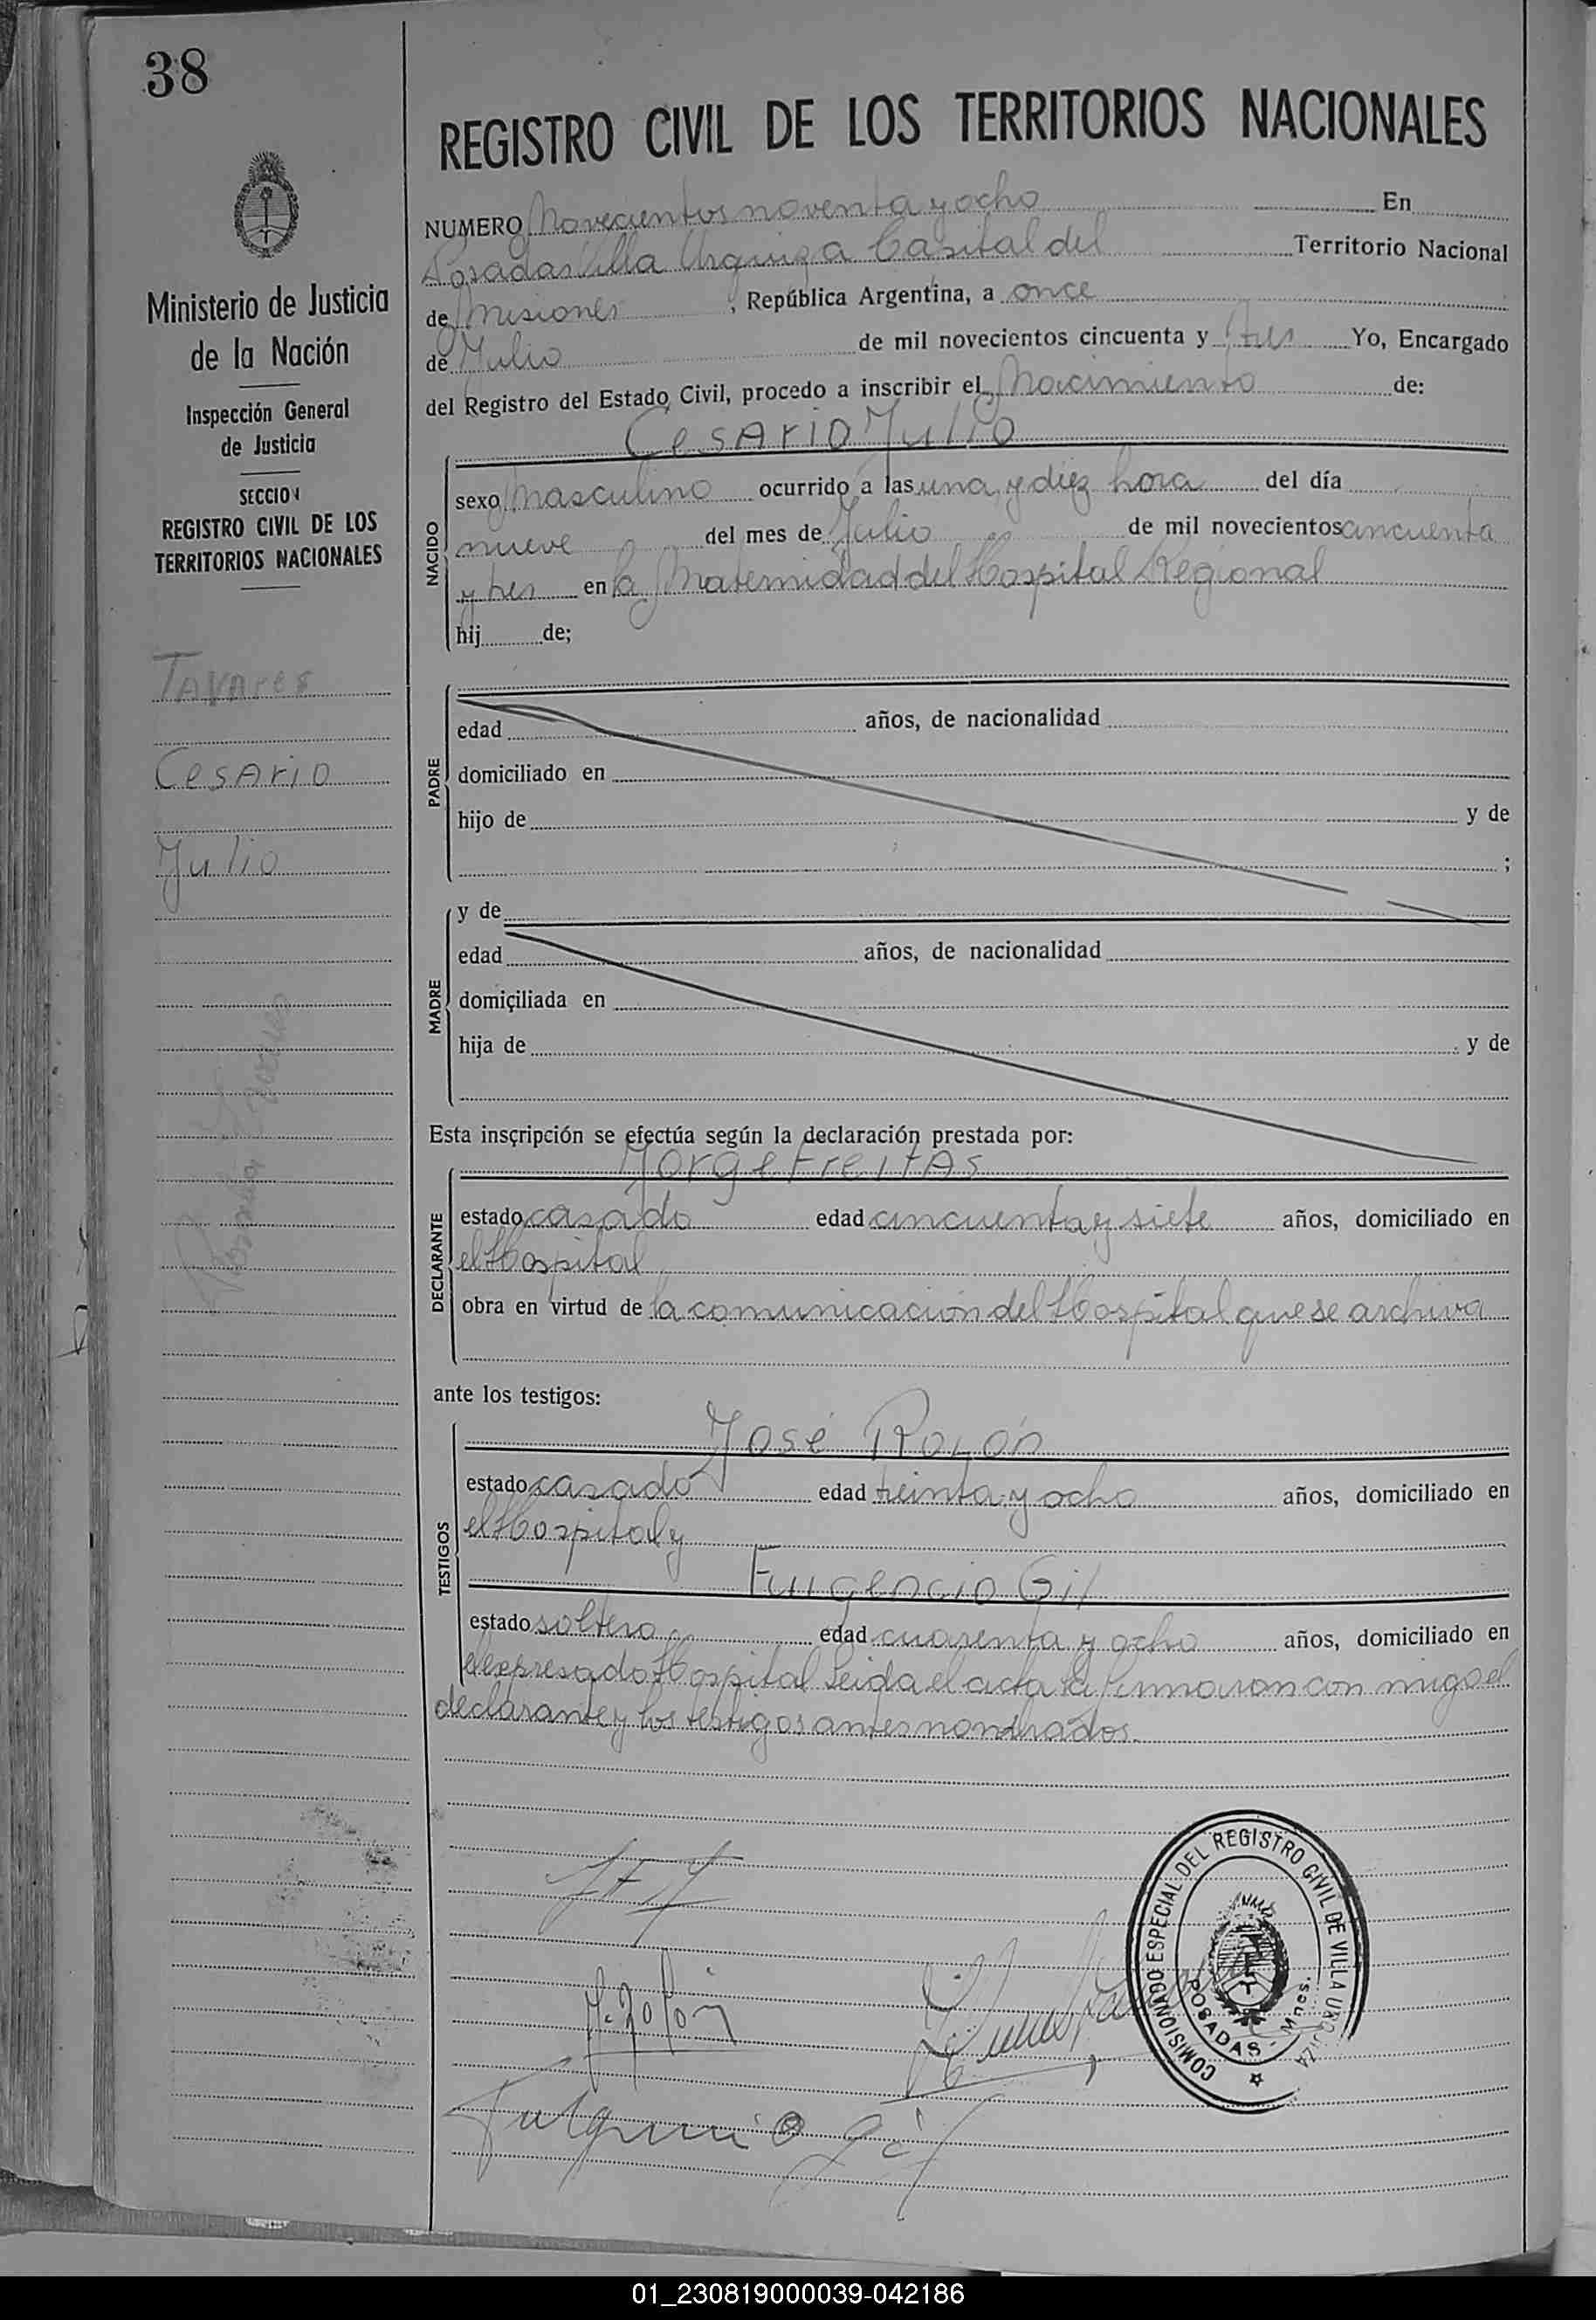 38
REGISTRO CIVIL DE LOS TERRITORIOS NACIONALES
Ministerio de Justicia
de la Nación
Inspección General
de Justicia
SECCION
REGISTRO CIVIL DE LOS
TERRITORIOS NACIONALES
Tavares
Cesario
Julio
NUMERO Novecientos noventa y ocho En
Posadas Villa Urquiza Capital del Territorio Nacional
de Misiones, República Argentina, a once
de Julio de mil novecientos cincuenta y tres Yo, Encargado
del Registro del Estado Civil, procedo a inscribir el Nacimiento de:
Cesario Julio
NACIDO
sexo Masculino ocurrido a las una y diez hora del día
nueve del mes de Julio de mil novecientos cincuenta
y tres en la Maternidad del Hospital Regional
hij de;
PADRE
edad años, de nacionalidad
domiciliado en
hijo de y de
;
MADRE
y de
edad años, de nacionalidad
domiciliada en
hija de y de
Esta inscripción se efectúa según la declaración prestada por:
Jorge Freitas
DECLARANTE
estado casado edad cincuenta y siete años, domiciliado en
el Hospital
obra en virtud de la comunicación del Hospital que se archiva
ante los testigos:
José Rolón
TESTIGOS
estado casado edad treinta y ocho años, domiciliado en
el Hospital y
Fulgencio Gil
estado soltero edad cuarenta y ocho años, domiciliado en
el expresado Hospital Leida el acta la firmaron con migo el
declarante y los testigos antes nombrados.
J. Rolón
Fulgencio Gil
COMISIONADO ESPECIAL DEL REGISTRO CIVIL DE VILLA URQUIZA
POSADAS - Mnes.
01_230819000039-042186